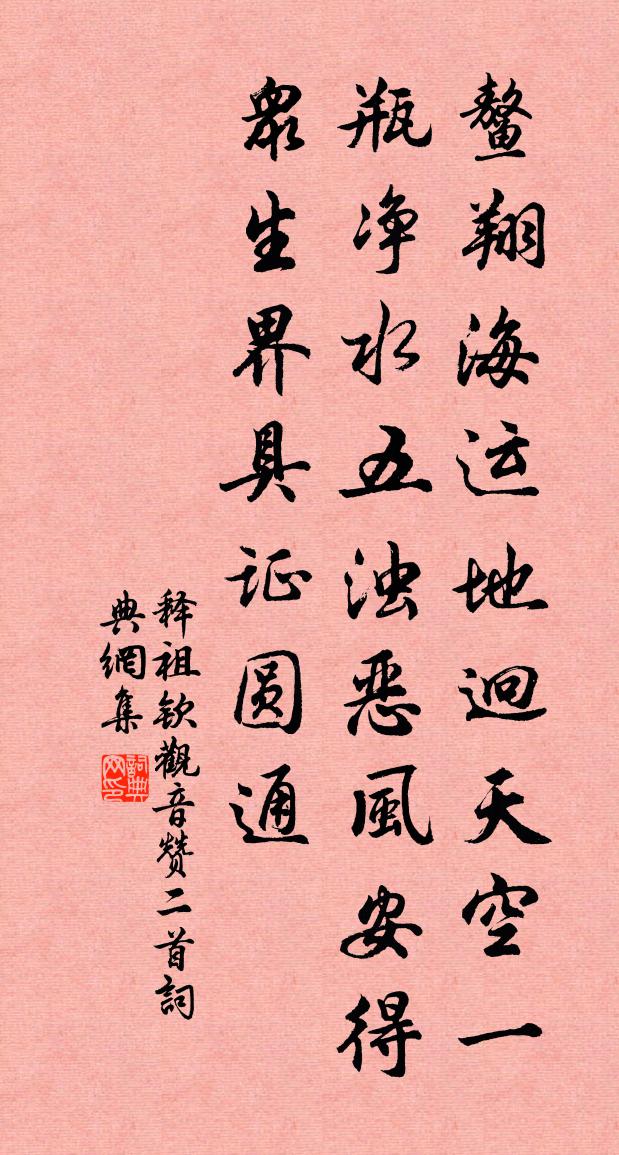 鳌翔海运地迥天空一
瓶净水五浊恶風安得
衆生界具证圆通
释祖钦觀音赞二首詞
典網集
詞典
网印